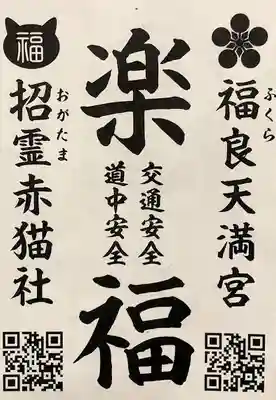 福良天満宮
ふくら
楽
交通安全
道中安全
福
福
招霊赤猫社
おがたま